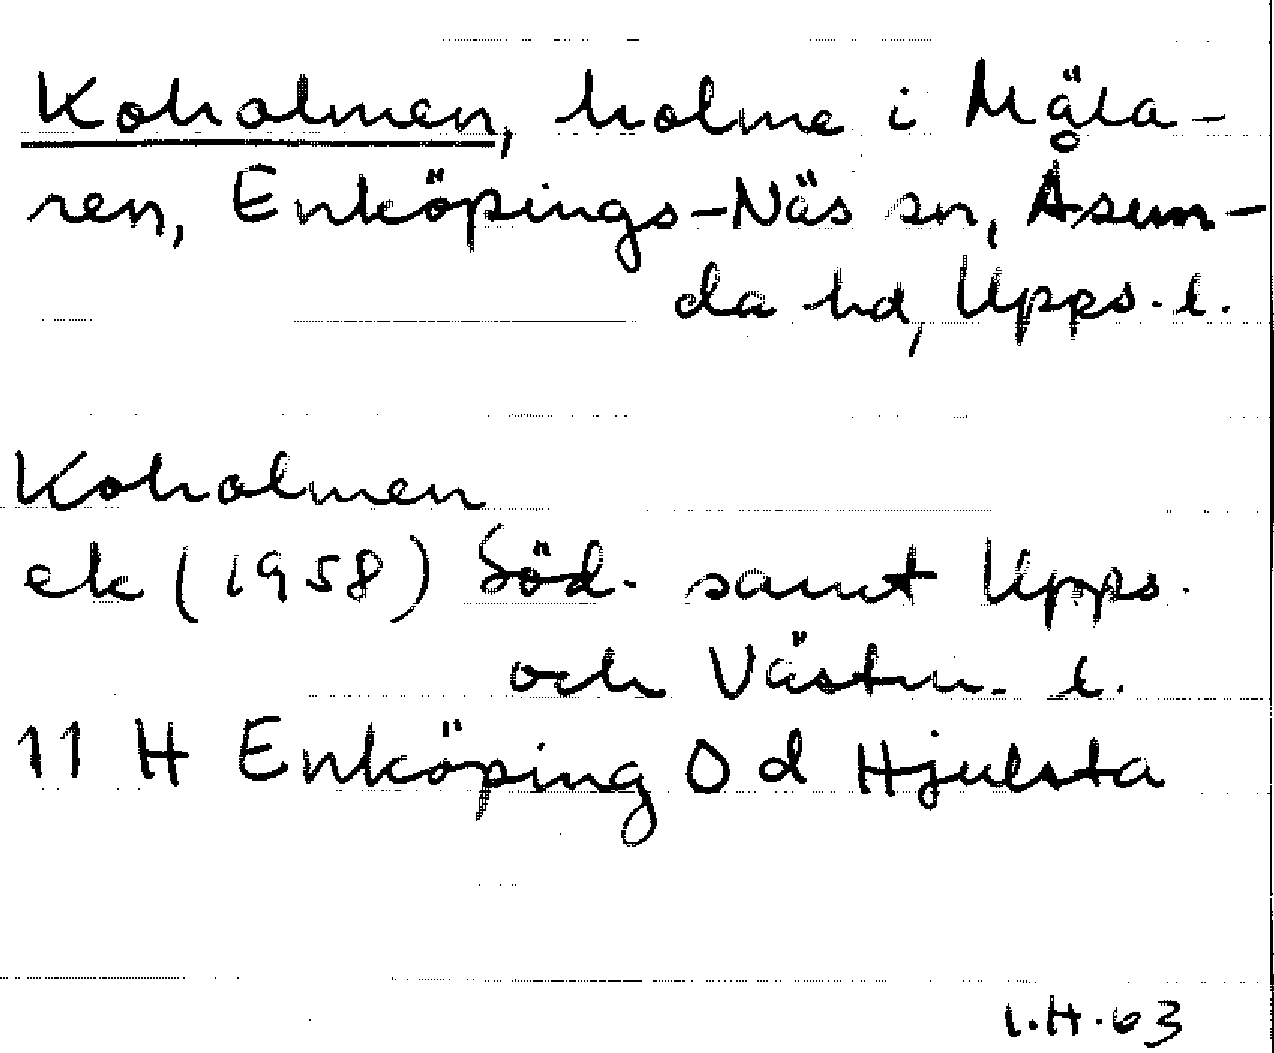 Koholmen, holme i Mäla-
ren, Enköpings-Näs sn, Åsun-
da hd, Upps. l.
Koholmen
ek (1958) Söd. samt Upps.
och Västm. l.
11 H Enköping O d Hjulsta
I.H.63